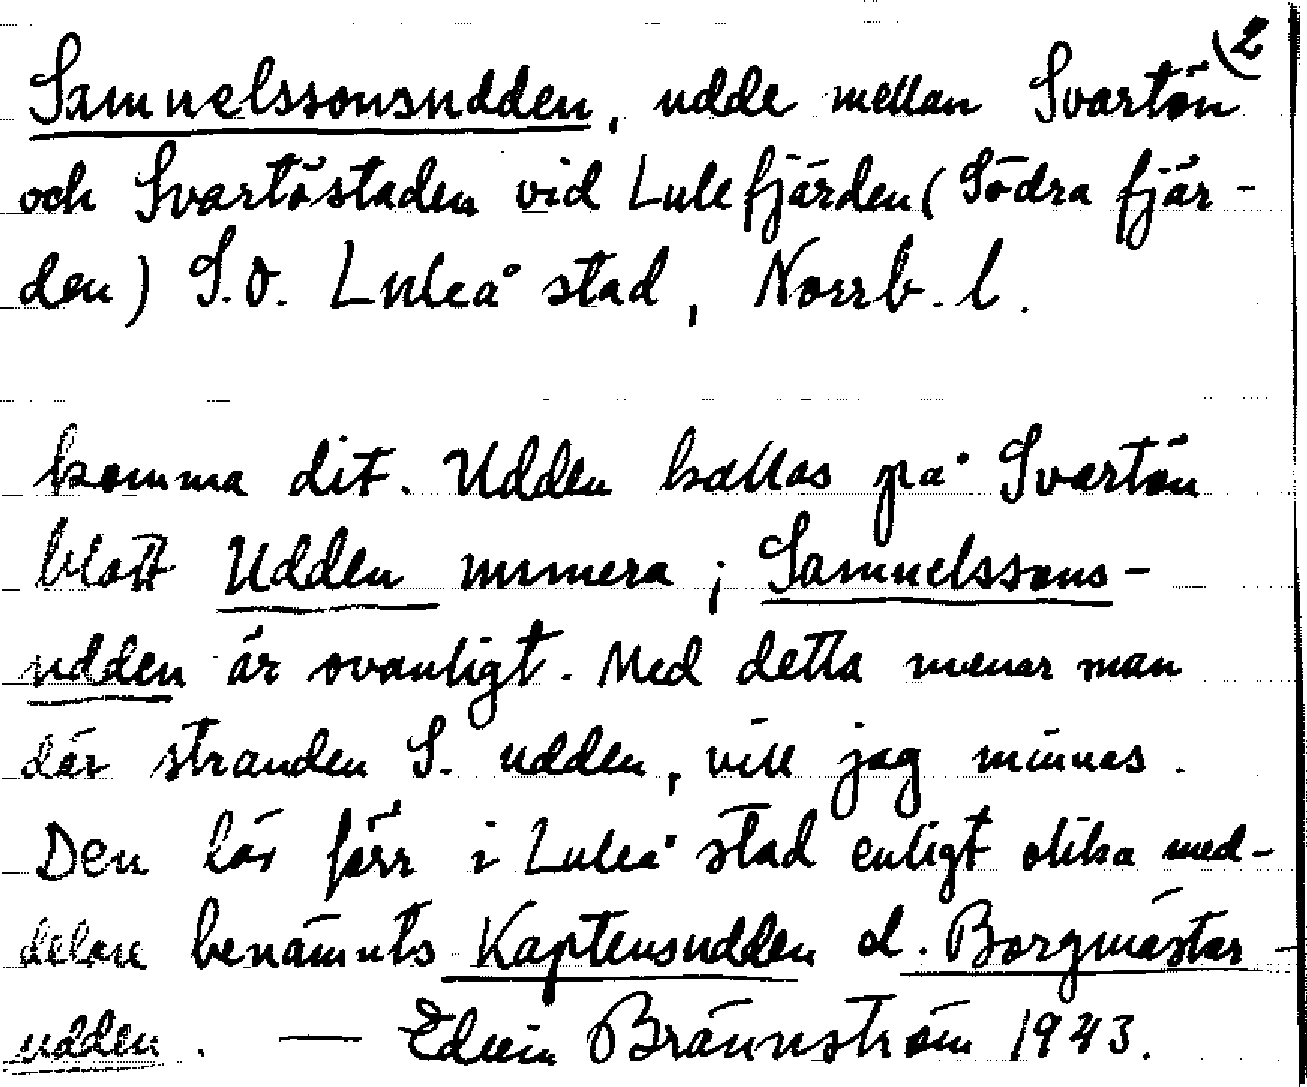 2
Samuelssonsudden, udde mellan Svartön
och Svartöstaden vid Lulefjärden (Södra fjär-
den) S.O. Luleå stad, Norrb. l.
komma dit. Udden kallas på Svartön
blott Udden numera; Samuelssons-
udden är ovanligt. Med detta menar man
där stranden S. udden, vill jag minnas.
Den lär förr i Luleå stad enligt olika med-
delare benämnts Kaptensudden el. Borgmästar-
udden. — Edvin Brännström 1943.